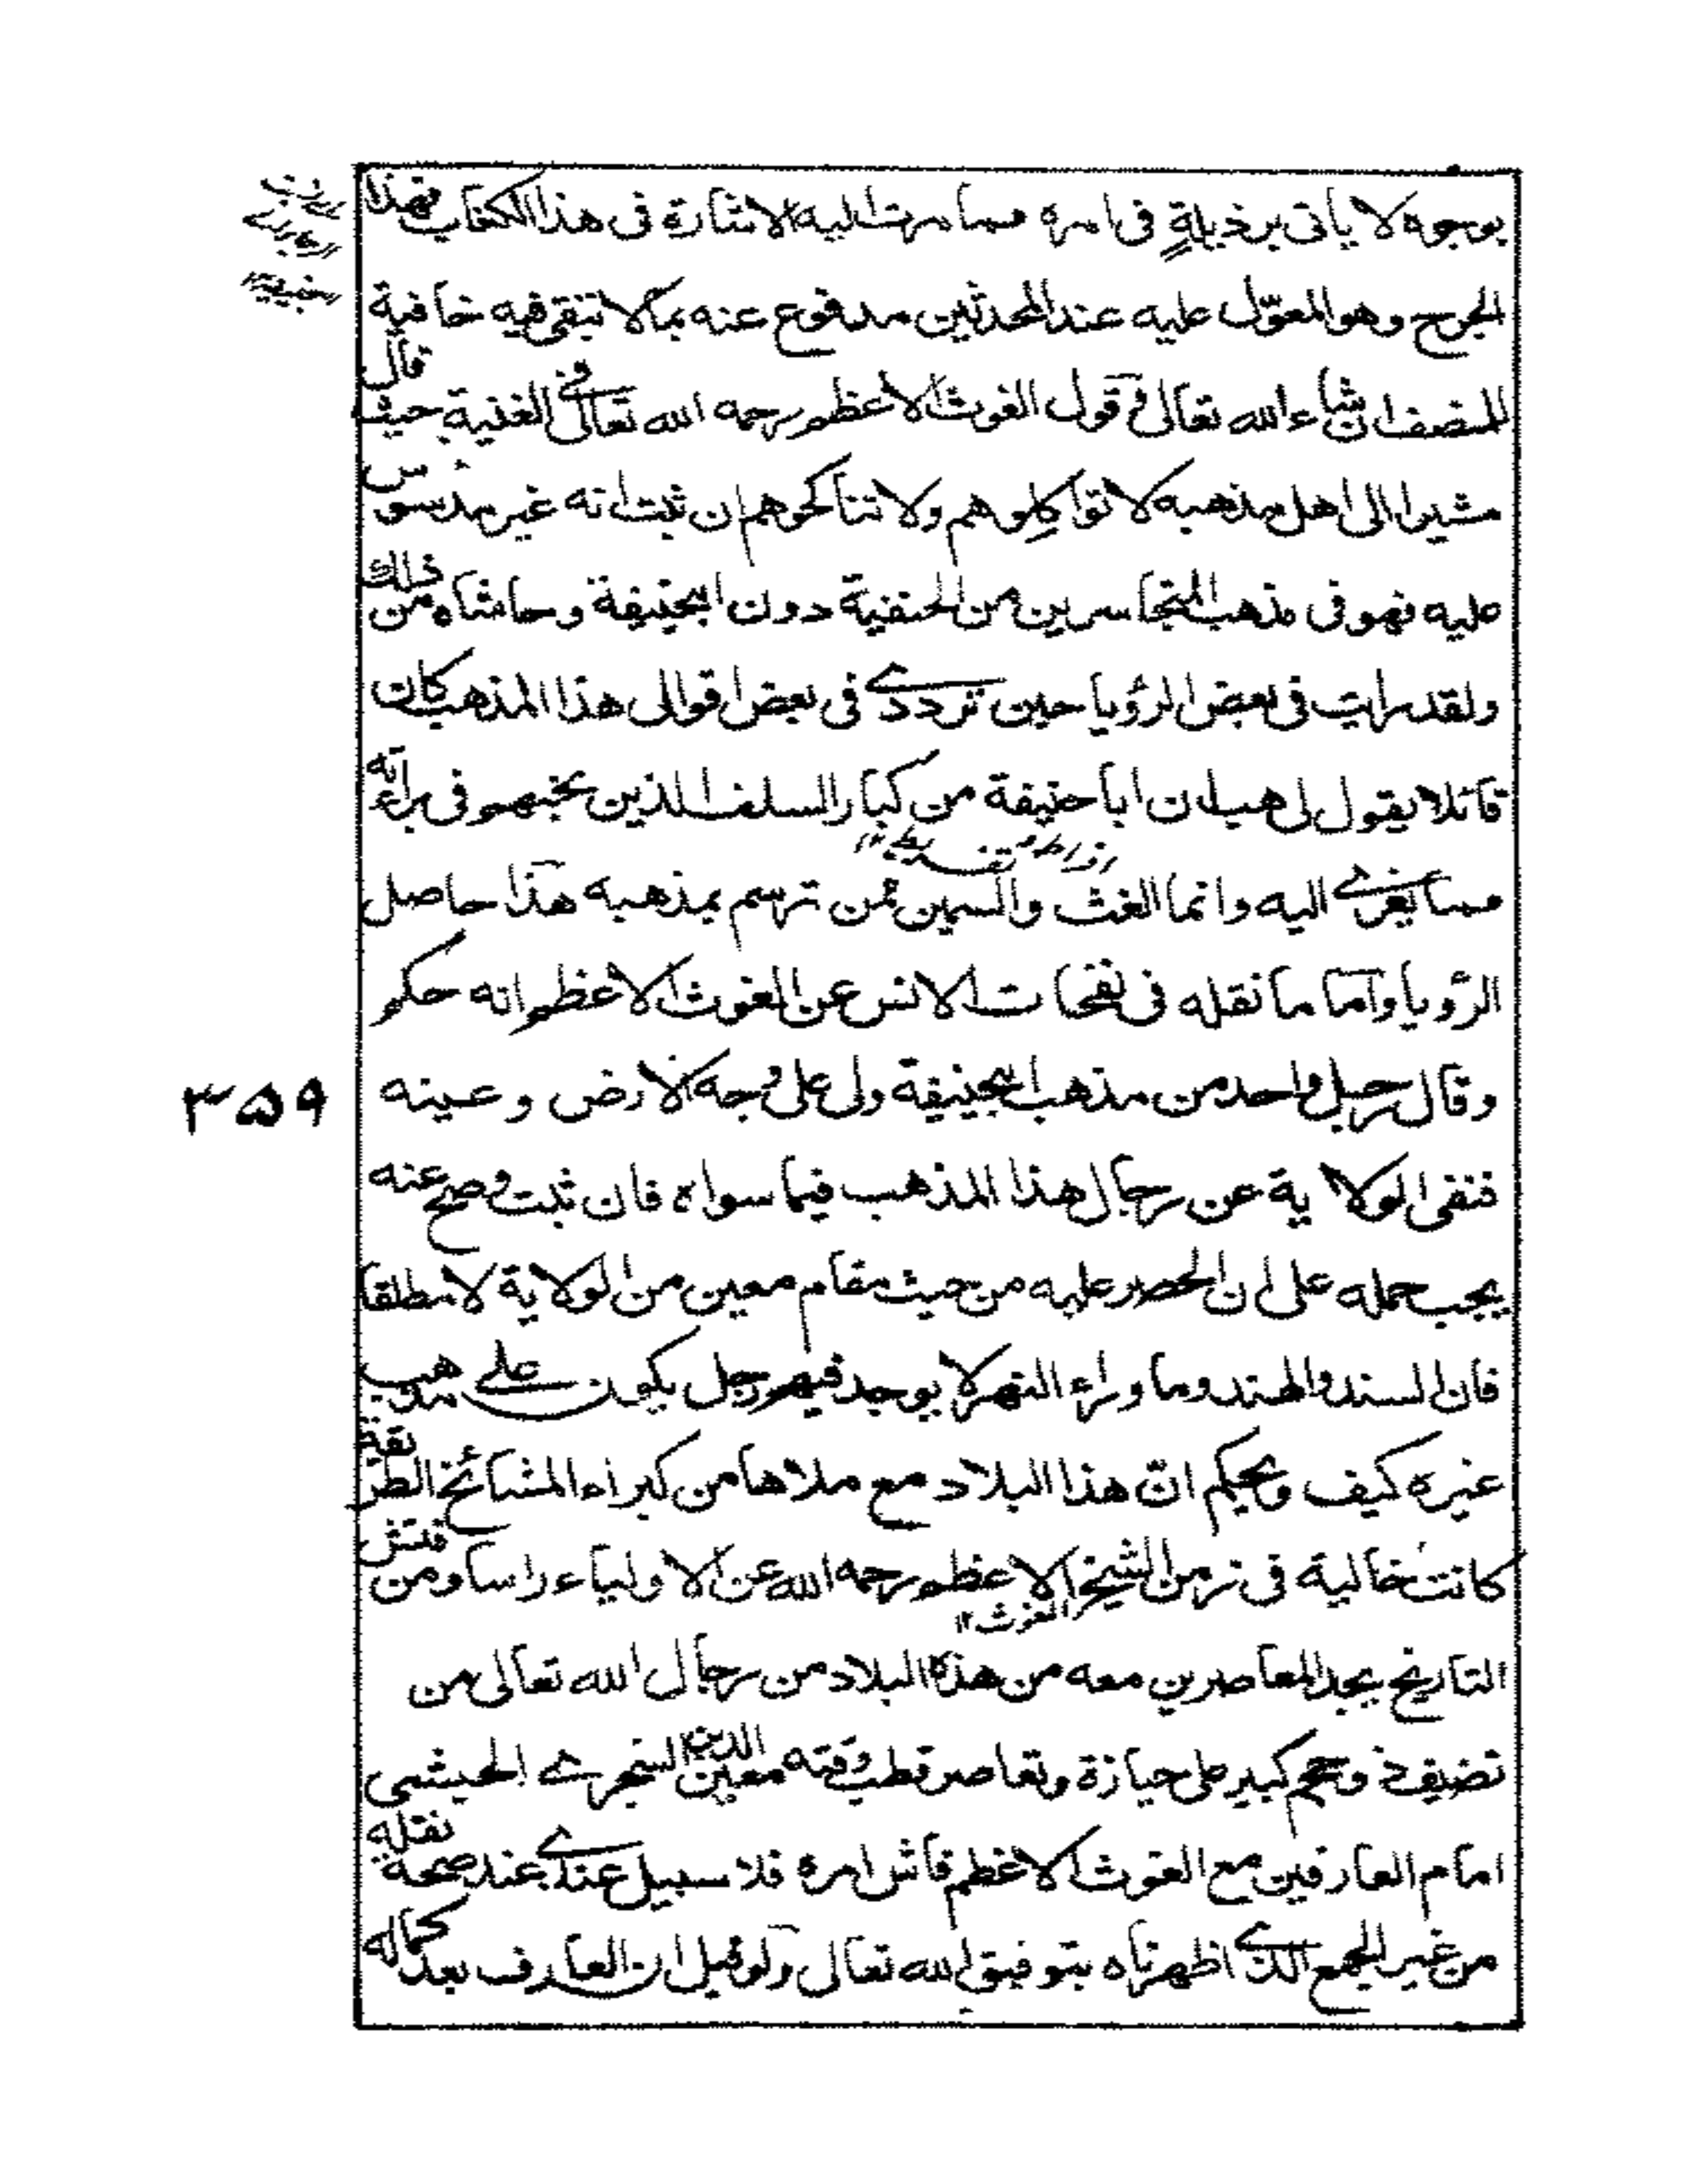 بوجوه لا ياتى برذيلةٍ فى امره مما مرت اليه الاشارة فى هذا الكتاب فهذا
الجرح وهو المعوّل عليه عند المحدثين مدفوع عنه بما لا تبقى فيه خافية
للمنصف ان شاء الله تعالى و قول الغوث الاعظم رحمه الله تعالى فى الغنية حيث قال
مشيرا الى اهل مذهبه لا تواكلوهم ولا تناكحوهم ان ثبت انه غير مدسوس
عليه فهو فى مذهب المتجاسرين من الحنفية دون ابيحنيفة وحاشاه من ذلك
ولقد رايت فى بعض الرؤيا حين ترددى فى بعض اقوالى هذا المذهب كان
قائلا يقول لى هب ان ابا حنيفة من كبار السلف الذين نحبهم فى براءته
مما يعزى اليه وانما الغث والسمين ممن ترسم بمذهبه هذا حاصل
الرؤيا واما ما نقله فى نفحات الانس عن الغوث الاعظم انه حكم
وقال رجل واحد من مذهب ابيحنيفة ولى على وجه الارض وعينه
٣٥٩
فنفى الولاية عن رجال هذا المذهب فيما سواه فان ثبت وصح عنه
يجب حمله على ان الحصر عليه من حيث مقام معين من الولاية لا مطلقا
فان السند والهند وما وراء النهر لا يوجد فيهم رجل يكون على مذهب
غيره كيف ويحكم انّ هذا البلاد مع ملاها من كبراء المشائخ الطريقة
كانت خالية فى زمن الشيخ الاعظم رحمه الله عن الاولياء راسا ومن فتش
الغوث١٢
التاريخ يجد المعاصرين معه من هذه البلاد من رجال الله تعالى من
تضيف و حجم كبير على حيازة وتعاصر قطب وقته معين الدين السنجرى الچشتى
امام العارفين مع الغوث الاعظم فاش امره فلا سبيل عندى عند صحة نقله
من غير الجمع الذى اظهرناه بتوفيق الله تعالى ولو قيل ان العارف بعد كماله